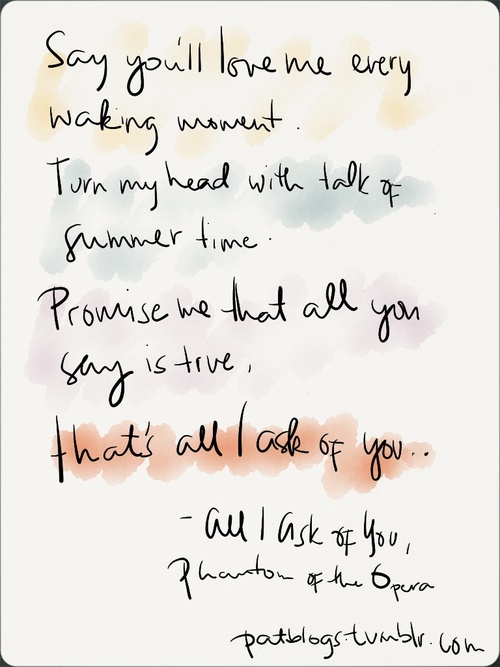 Say you'll love me every
waking moment.
Turn my head with talk of
summer time.
Promise me that all you
say is true,
that's all I ask of you..
- All I Ask of You,
Phantom of the Opera
patblogs.tumblr.com